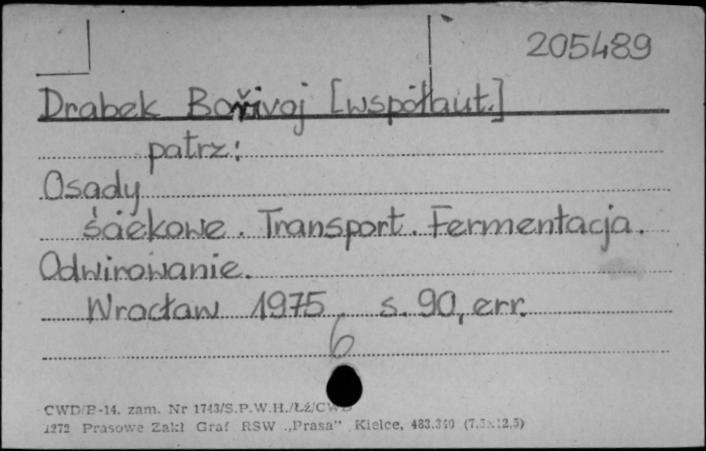 205489
Drabek Bořivoj [współaut.]
patrz:
Osady
ściekowe. Transport. Fermentacja.
Odwirowanie.
Wrocław 1975 s. 90, err.
6
CWD/B-14. zam. Nr 1743/S.P.W.H./Łź/CWD
1272 Prasowe Zakł Graf RSW „Prasa” Kielce, 483.340 (7,5x12,5)